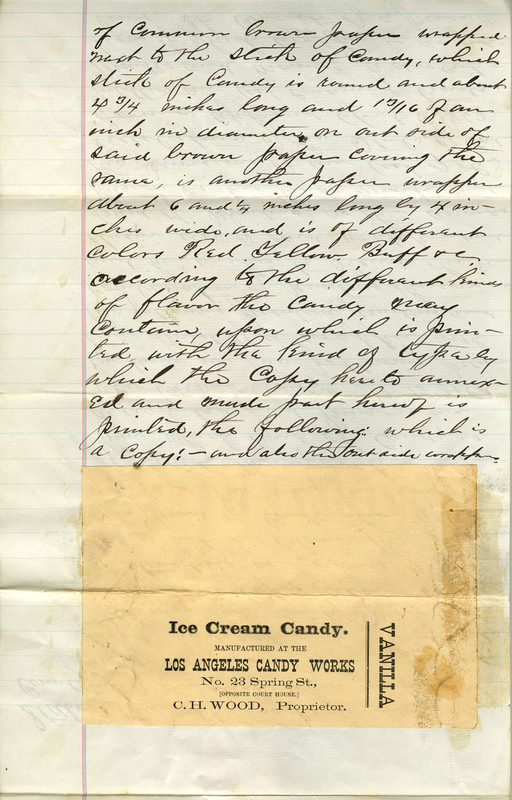 of common brown paper wrapped
next to the stick of candy, which
stick of Candy is round and about
4 3/4 inches long and 15/16 of an
inch in diameter, on out side of
said brown paper covering the
same, is another paper wrapper
about 6 and 1/4 inches long by 4 in-
ches wide, and is of different
colors Red, Yellow, Buff &c
according to the different kinds
of flavor the candy may
contain, upon which is prin-
ted with the kind of type by
which the Copy hereto annex-
ed and made part hereof is
printed, the following which is
a copy:- and also the out side wrapper
Ice Cream Candy.
MANUFACTURED AT THE
LOS ANGELES CANDY WORKS
No. 23 Spring St.,
[OPPOSITE COURT HOUSE.]
C. H. WOOD, Proprietor.
VANILLA